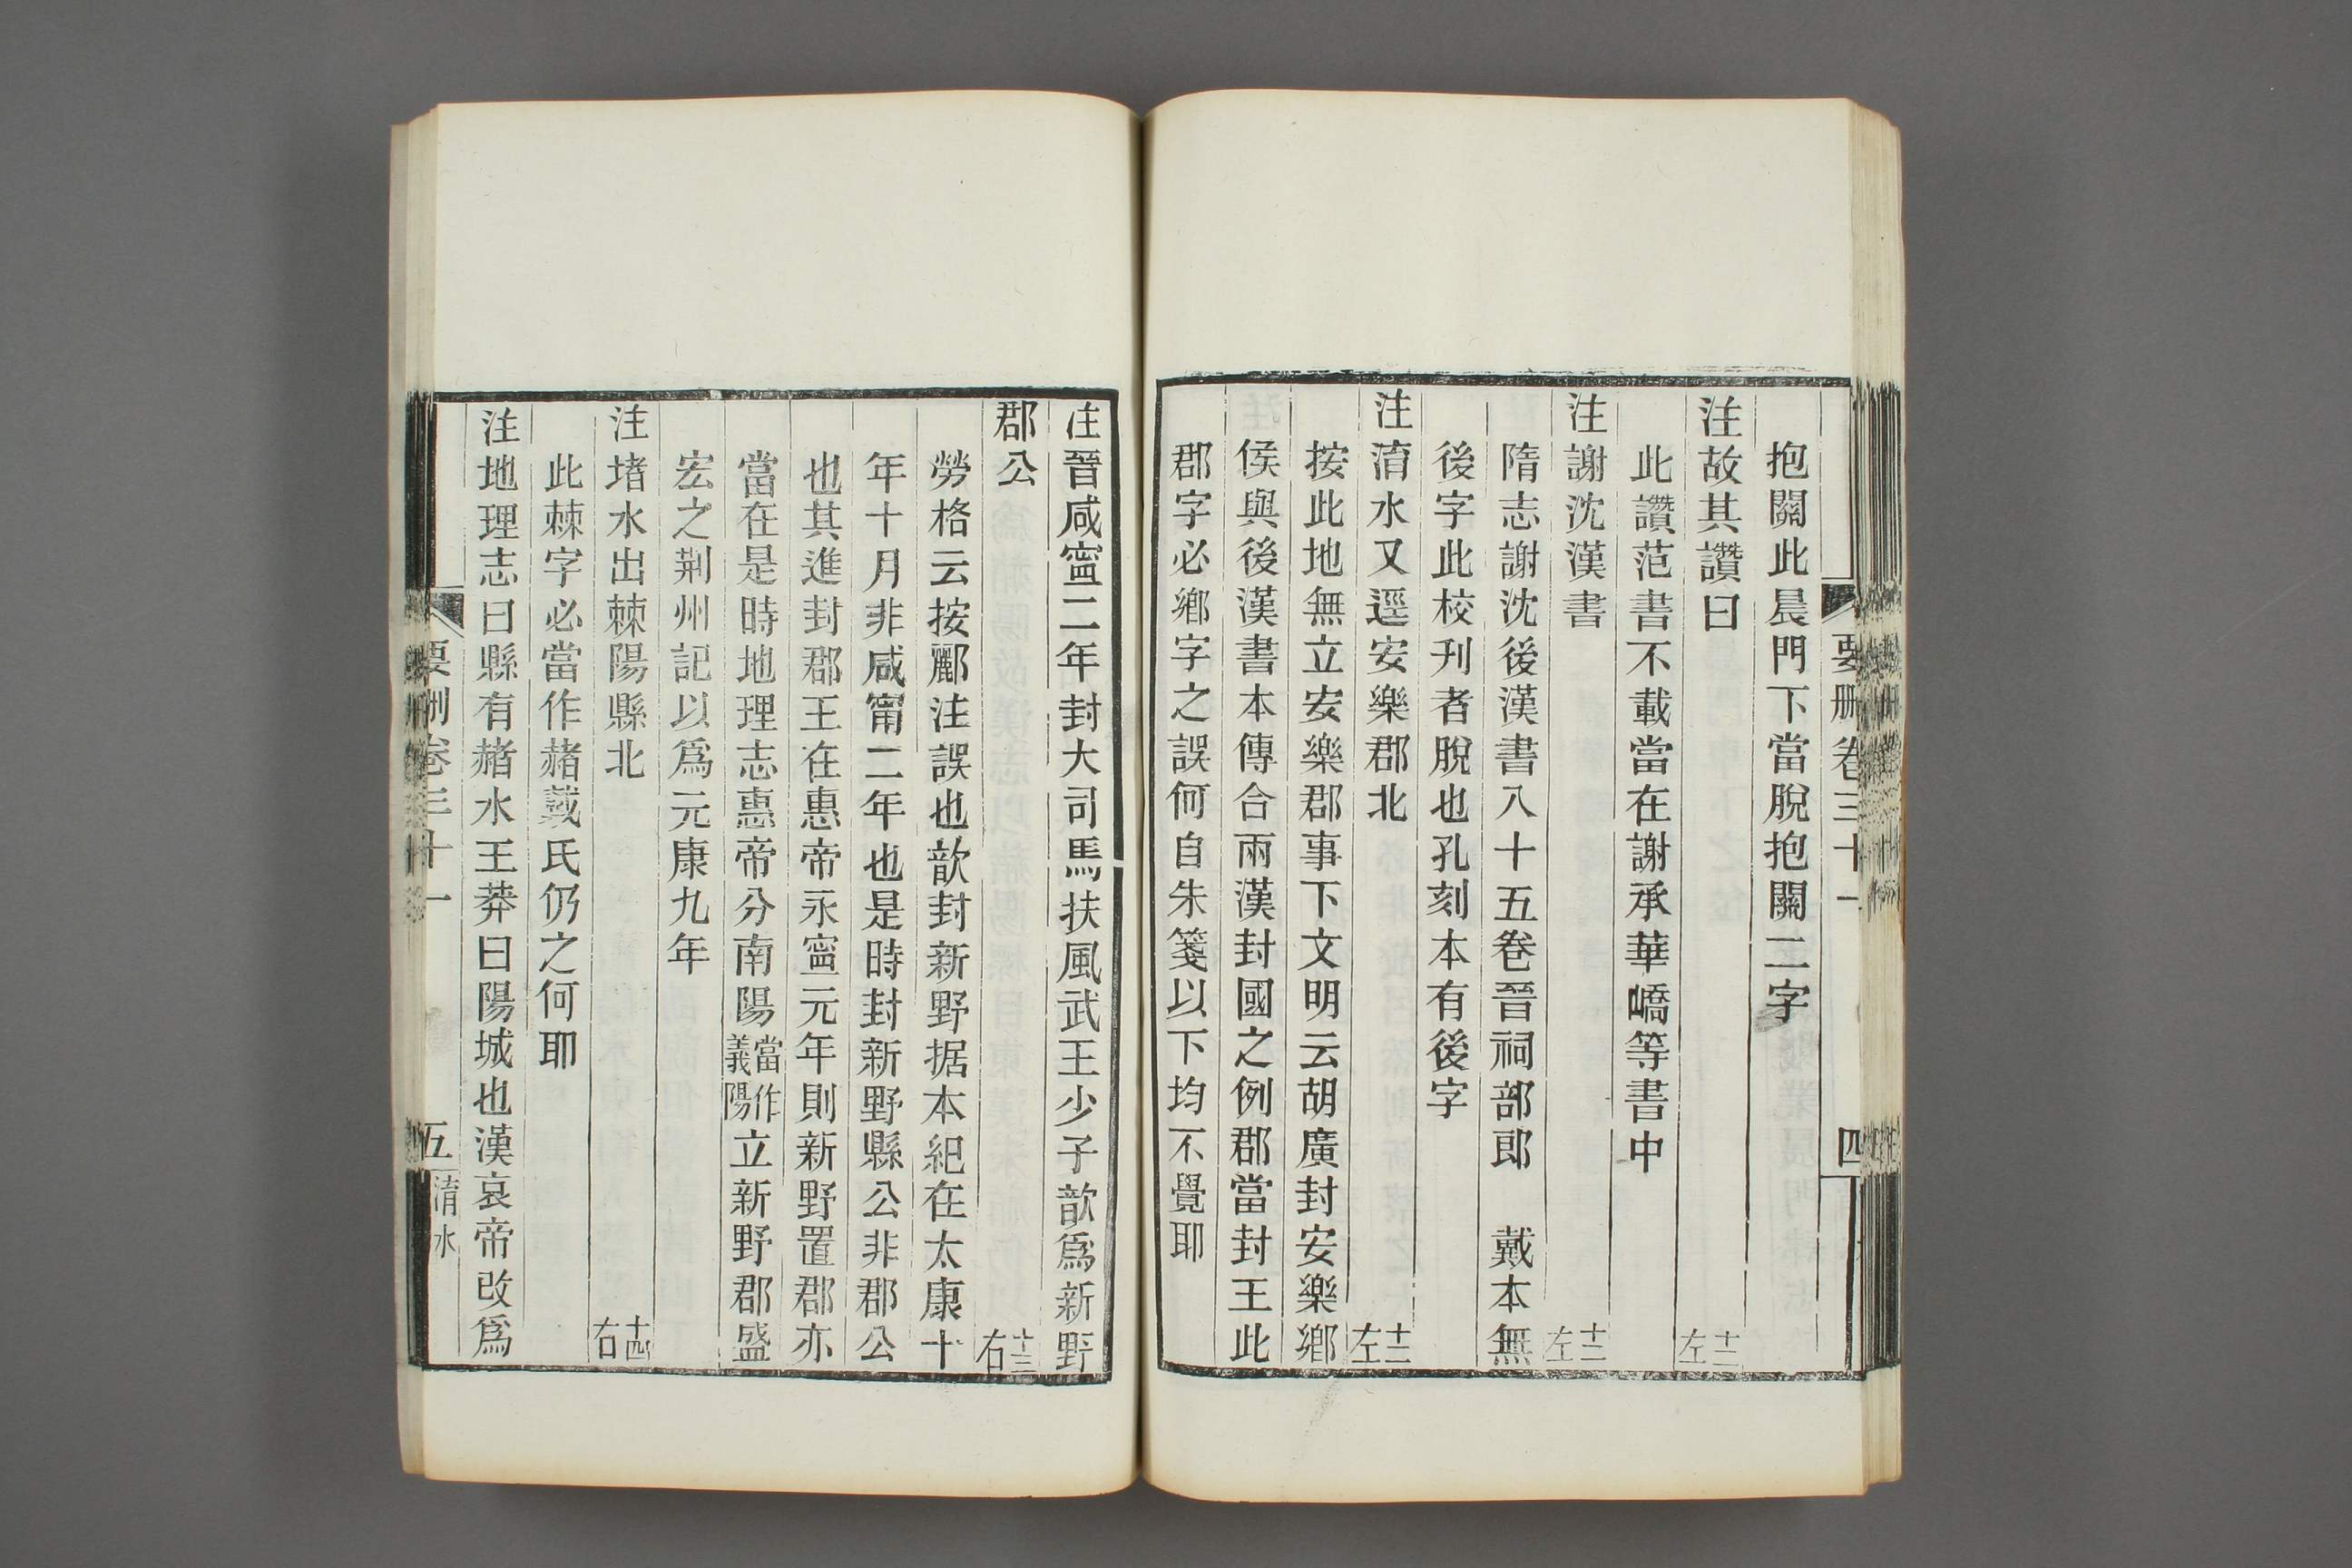 要刪卷三十一 四
抱關此晨門下當脫抱關二字
注故其讚曰 十二左
此讚范書不載當在謝承華嶠等書中
注謝沈漢書 十二左
隋志謝沈後漢書八十五卷晉祠部郎 戴本無
後字此校刊者脫也孔刻本有後字
注淯水又逕安樂郡北 十二左
按此地無立安樂郡事下文明云胡廣封安樂鄉
侯與後漢書本傳合兩漢封國之例郡當封王此
郡字必鄉字之誤何自朱箋以下均不覺耶
注晉咸寧二年封大司馬扶風武王少子歆爲新野
郡公 十三右
勞格云按酈注誤也歆封新野据本紀在太康十
年十月非咸甯二年也是時封新野縣公非郡公
也其進封郡王在惠帝永寧元年則新野置郡亦
當在是時地理志惠帝分南陽當作義陽立新野郡盛
宏之荆州記以爲元康九年
注堵水出棘陽縣北 十四右
此棘字必當作赭戴氏仍之何耶
注地理志曰縣有赭水王莽曰陽城也漢哀帝改爲
要刪卷三十一 五 淯水